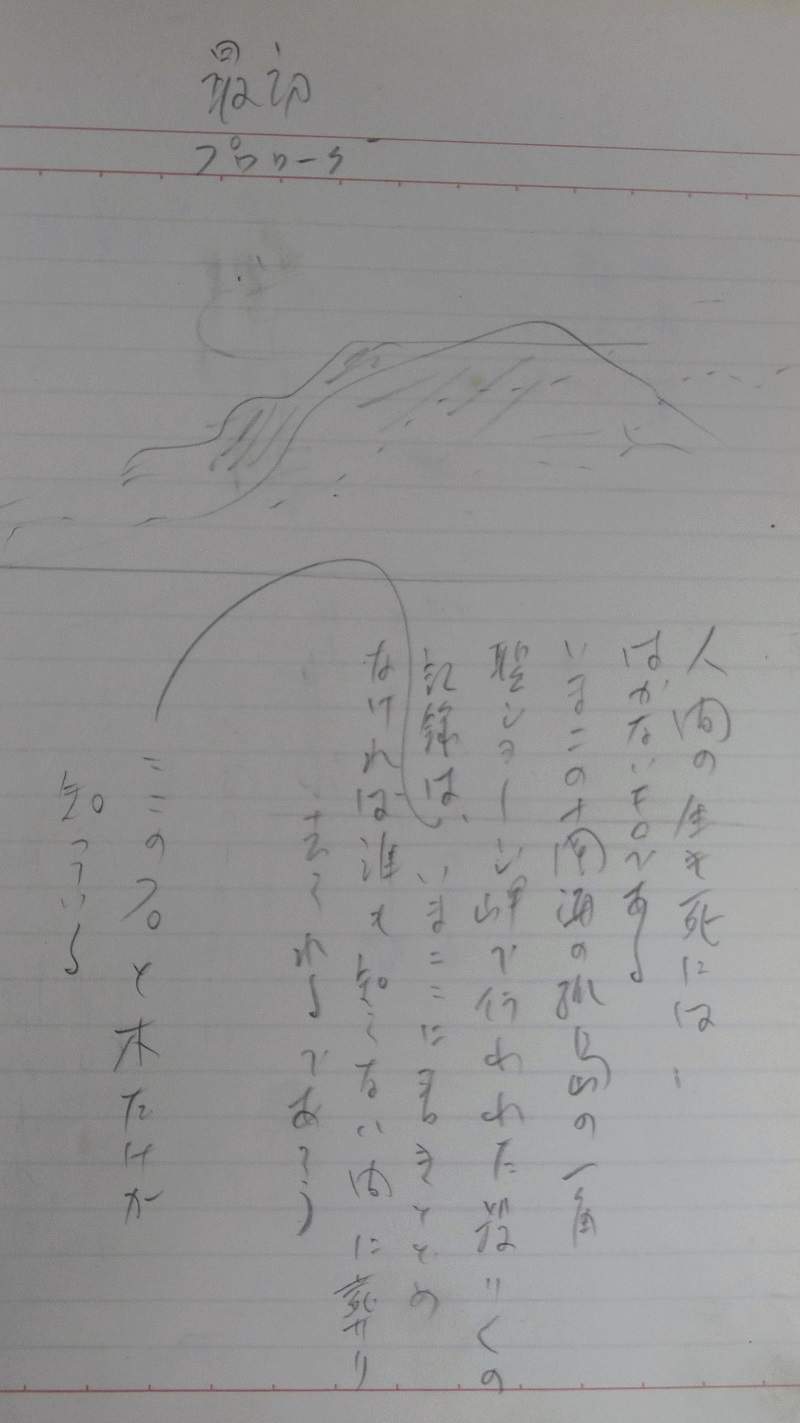 最初
プロローグ
人間の生き死には
はかないものである
いまこの大海の孤島の一角
聖ジョージ岬で行われた殺りくの
記録は、いまここに書きとどめ
なければ誰も知らない内に葬り
去られるであろう
ここの石と木だけが
知っている